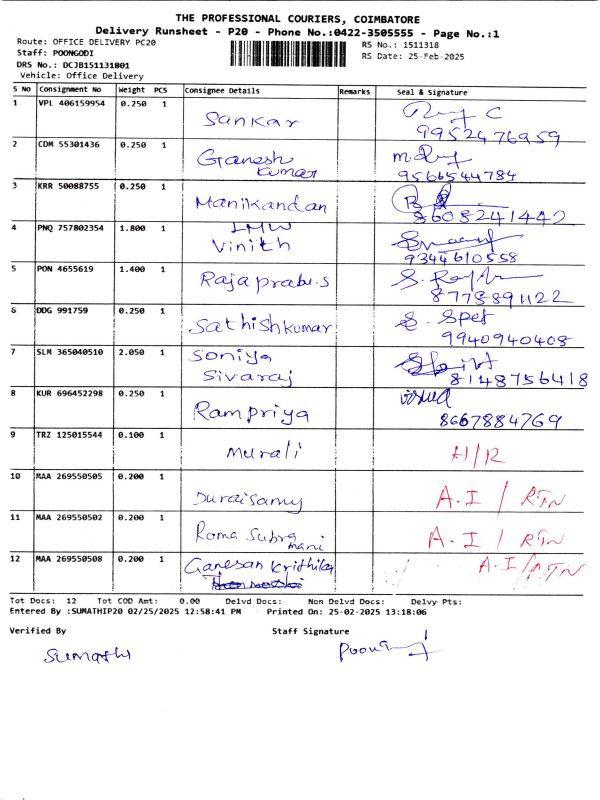 THE PROFESSIONAL COURIERS, COIMBATORE
Delivery Runsheet - P20 - Phone No.:0422-3505555 - Page No.:1
Route: OFFICE DELIVERY PC20 RS No.: 1511318
Staff: POONGODI RS Date: 25-Feb-2025
DRS No.: DCJB151131801
Vehicle: Office Delivery
S No Consignment No Weight PCS Consignee Details Remarks Seal & Signature
1 VPL 406159954 0.250 1 Sankar
9952476959
2 CDM 55301436 0.250 1 Ganesh
Kumar 9566544784
3 KRR 50088755 0.250 1 Manikandan
8608241442
4 PNQ 757802354 1.800 1
Vinith 9344610558
5 PON 4655619 1.400 1 Rajaprabu.S
8778891122
6 DDG 991759 0.250 1 Sathishkumar
9940940408
7 SLM 365040510 2.050 1 Soniya
Sivaraj 8148756418
8 KUR 696452298 0.250 1 Rampriya
8667884769
9 TRZ 125015544 0.100 1 Murali
10 MAA 269550505 0.200 1 Duraisamy A.I / RTN
11 MAA 269550502 0.200 1 Rama Subra
mani A.I / RTN
12 MAA 269550508 0.200 1 Ganesan A.I / RTN
Tot Docs: 12 Tot COD Amt: 0.00 Delvd Docs: Non Delvd Docs: Delvy Pts:
Entered By :SUMATHIP20 02/25/2025 12:58:41 PM Printed On: 25-02-2025 13:18:06
Verified By Staff Signature
Sumathi